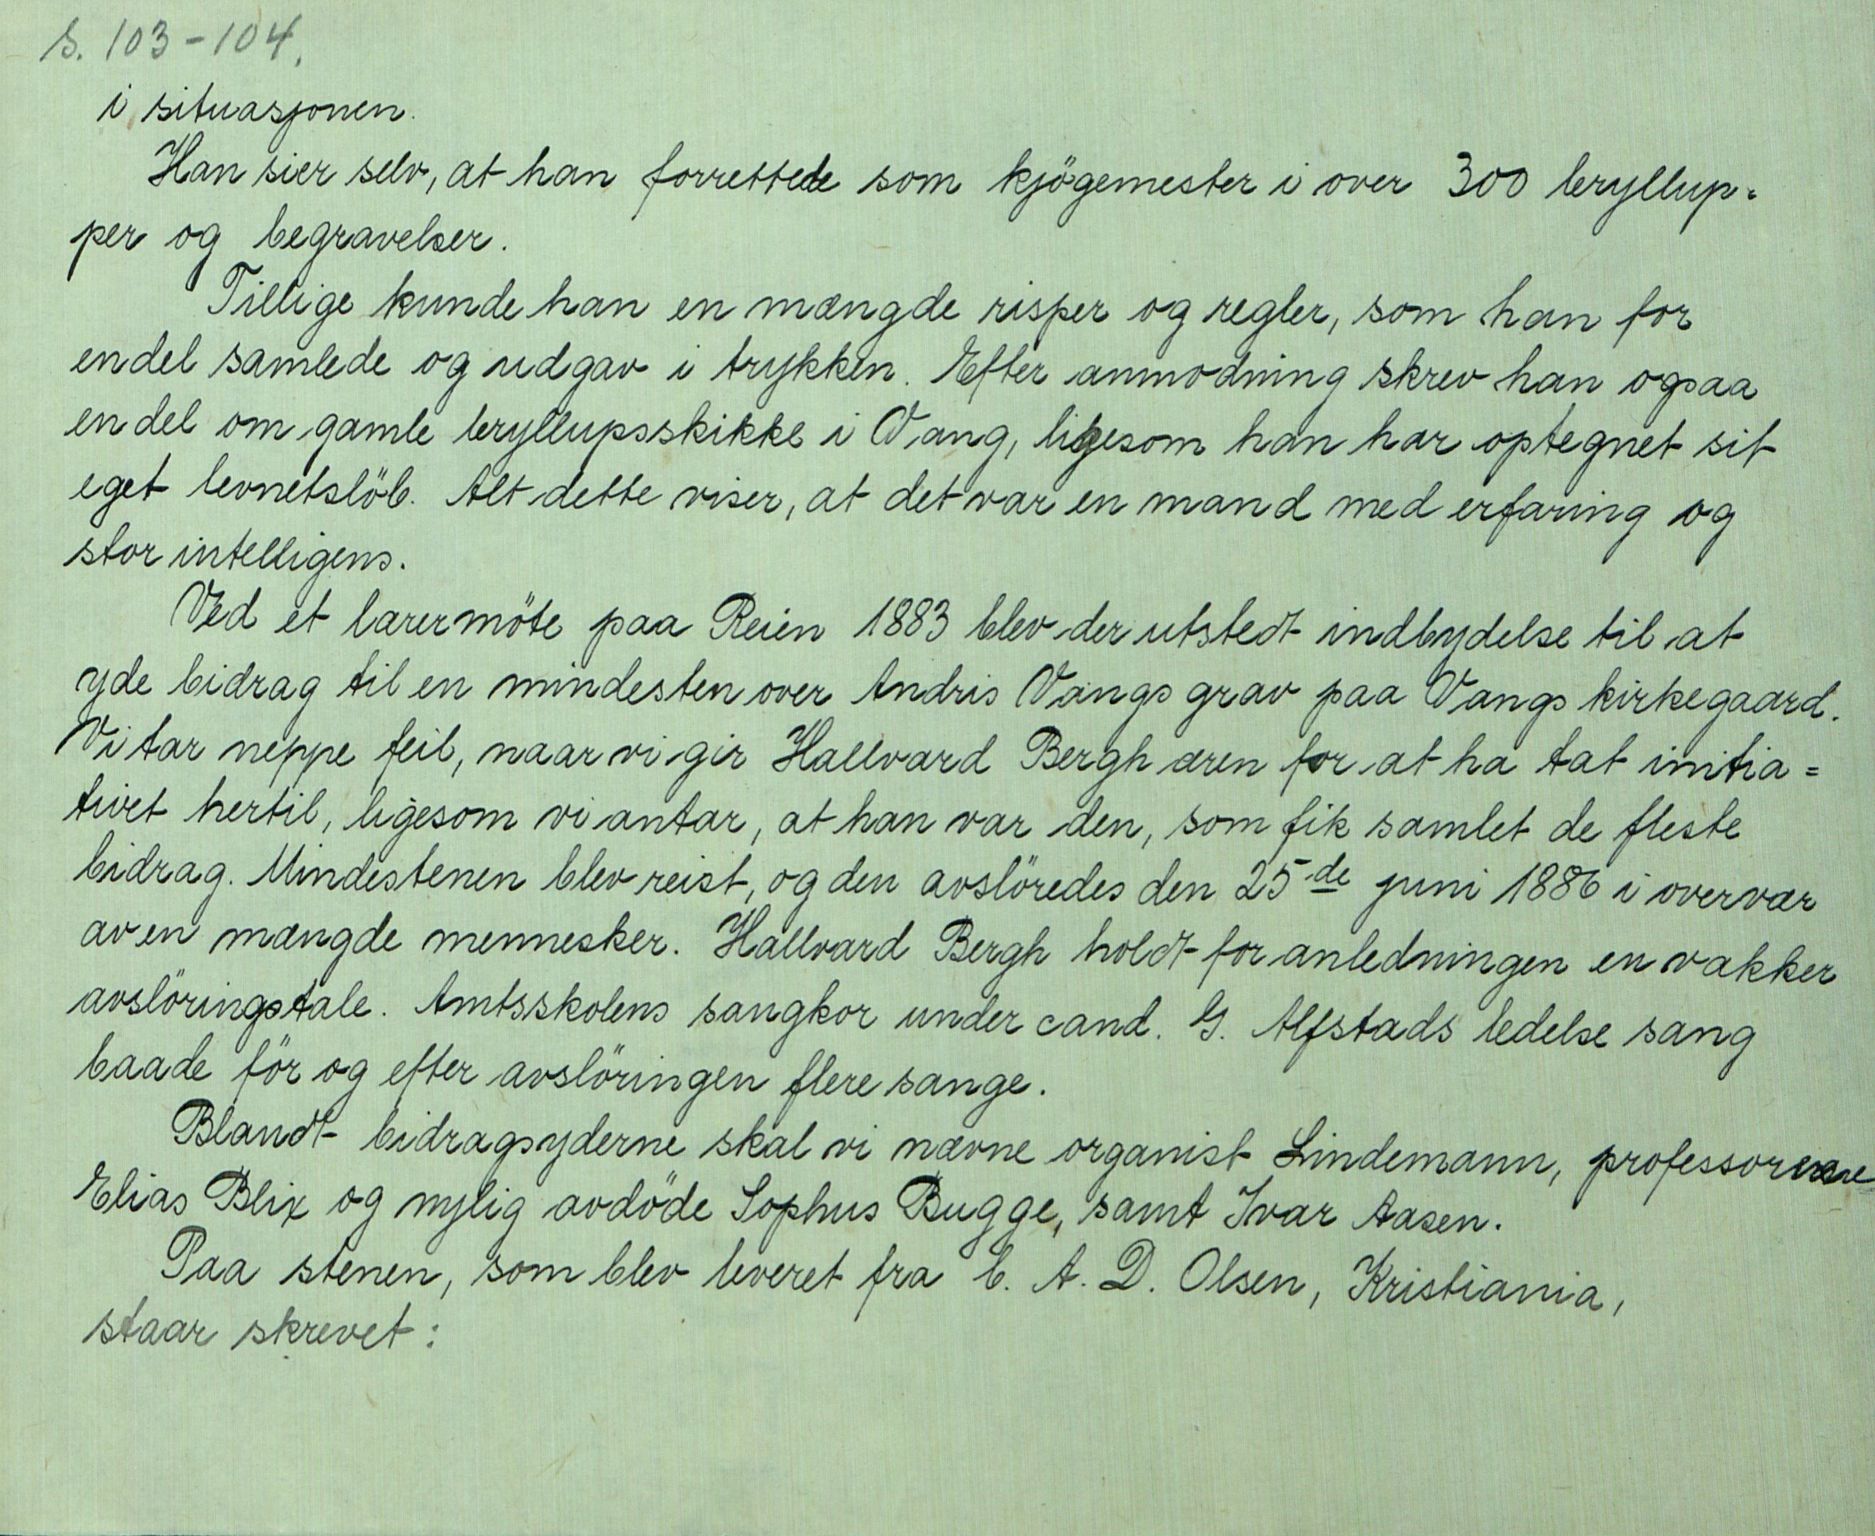 S. 103-104.
i situasjonen.
Han sier selv, at han forrettede som kjögemester i over 300 bryllup=
per og begravelser.
Tillige kunde han en mængde risper og regler, som han for
endel samlede og udgav i trykken. Efter anmodning skrev han ogsaa
en del om gamle bryllupsskikke i Vang, ligesom han har optegnet sit
eget levnetslöb. Alt dette viser, at det var en mand med erfaring og
stor intelligens.
Ved et lærermöte paa Reien 1883 blev der utstedt indbydelse til at
yde bidrag til en mindesten over Andris Vangs grav paa Vangs kirkegaard.
Vi tar neppe feil, naar vi gir Hallvard Bergh æren for at ha tat initia=
tivet hertil, ligesom vi antar, at han var den, som fik samlet de fleste
bidrag. Mindestenen blev reist, og den avslöredes den 25de juni 1886 i overvær
av en mængde mennesker. Hallvard Bergh holdt for anledningen en vakker
avslöringstale. Amtsskolens sangkor under cand. G. Alfstads ledelse sang
baade för og efter avslöringen flere sange.
Blandt bidragsyderne skal vi nævne organist Lindemann, professorerne
Elias Blix og nylig avdöde Sophus Bugge, samt Ivar Aasen.
Paa stenen, som blev leveret fra b. A. D. Olsen, Kristiania,
staar skrevet: